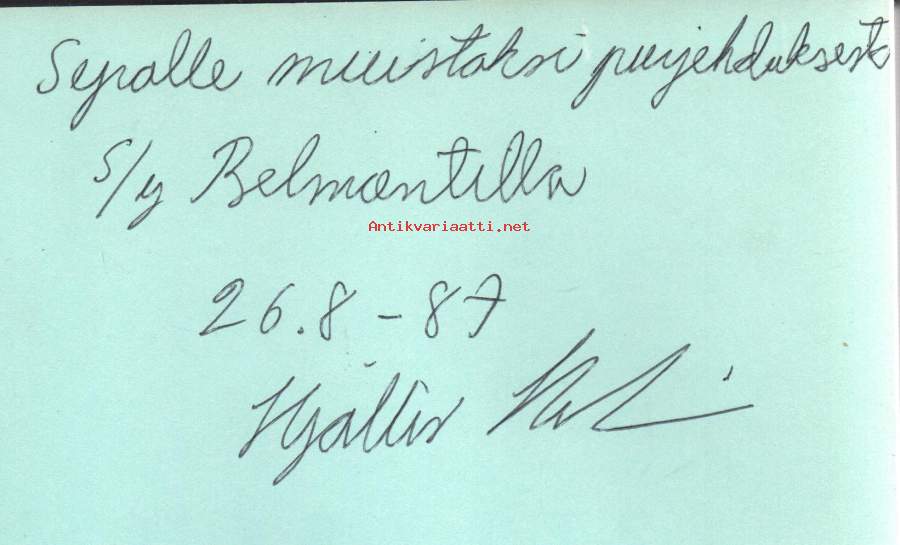 Seyralle muistoksi purjehduksesta
s/y Belmontilla
Antikvariaatti.net
26.8-87
Hjallis